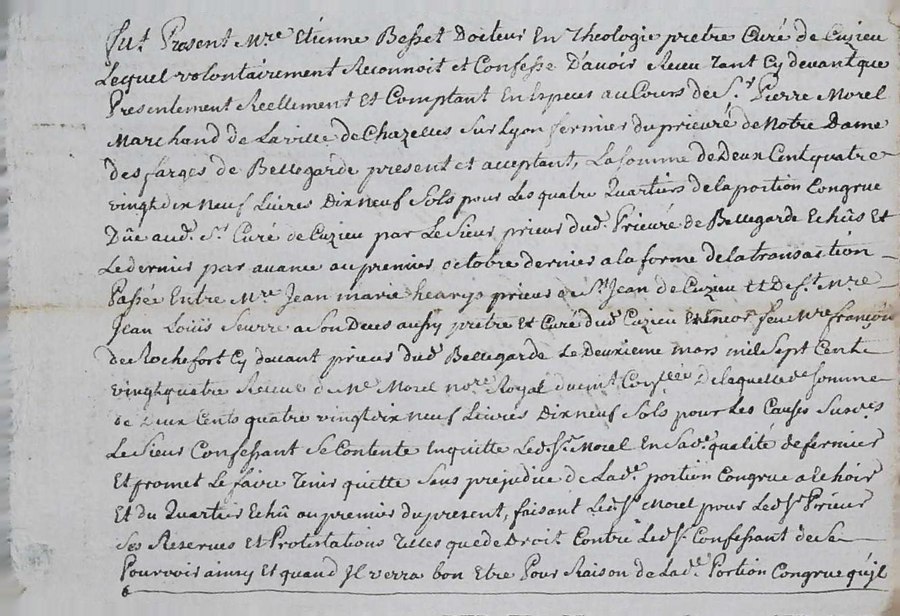 fut Présent Mre Etienne Besset Docteur En Theologie pretre Curé de Cuzieu
Lequel volontairement Reconnoit et Confesse D'avoir Receu Tant Cy devant que
Presentement Reellement Et Comptant En Especes au Cours de Sr Pierre Morel
Marchand de La ville de Chazelles Sur Lyon fermier du prieuré de Notre Dame
des farges de Bellegarde present et acceptant, La somme de Deux Cent quatre
vingt dix Neuf Livres Dix neuf Sols pour Les quatre Quartiers de la portion Congrue
Düe aud. Sr Curé de Cuzieu par Le Sieur prieur dud. Prieuré de Bellegarde Echûs Et
Le dernier par avance au premier octobre dernier a la forme de la transaction
Passée Entre Mre Jean marie prieur de St Jean de Cuzieu Et Deft Mre
Jean Loüis Seurre a Son Deces aussy pretre Et Curé dud Cuzieu feu Mre françois
de Rochefort Cy devant prieur dud Bellegarde Le Deuxieme mars mil Sept Cent
vingt quatre Receue de Me Morel nore Royal de laquelle de Somme
de Deux Cents quatre vingt dix neuf Livres Dix neuf Sols pour Les Causes Susd.s
Le Sieur Confessant Se Contente En quitte Led. Sr Morel En Sade qualité de fermier
Et promet Le faire Tenir quitte Sans prejudice de Lade portion Congrue a Echoir
Et du Quartier Echû au premier du present, faisant Led. Sr Morel pour Led. Sr Prieur
Ses Reserves Et Protestations Telles que de Droit Contre Led. Sr Confessant de Se
Pourvoir ainsy Et quand Jl verra bon Etre Pour Raison de Lade Portion Congrue qu'jl